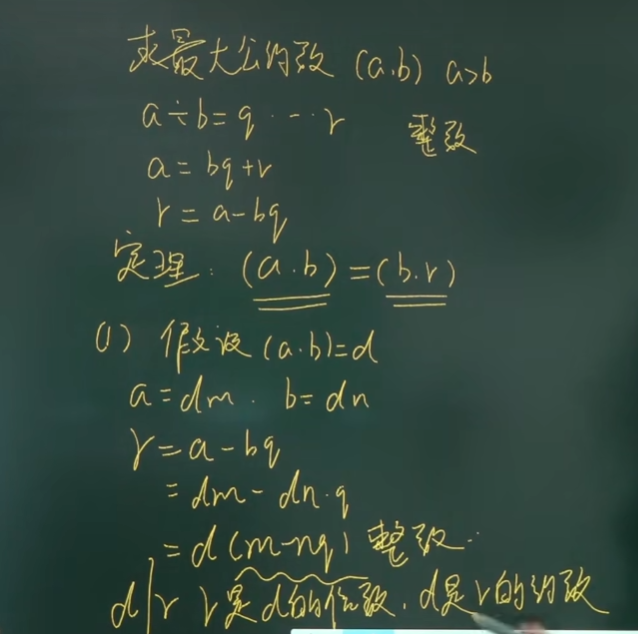 求最大公约数 (a.b) a>b
a÷b=q…r 整数
a=bq+r
r=a-bq
定理: (a.b)=(b.r)
(1) 假设(a.b)=d
a=dm. b=dn
r=a-bq
=dm-dn.q
=d(m-nq) 整数.
d|r r是d的倍数.d是r的约数